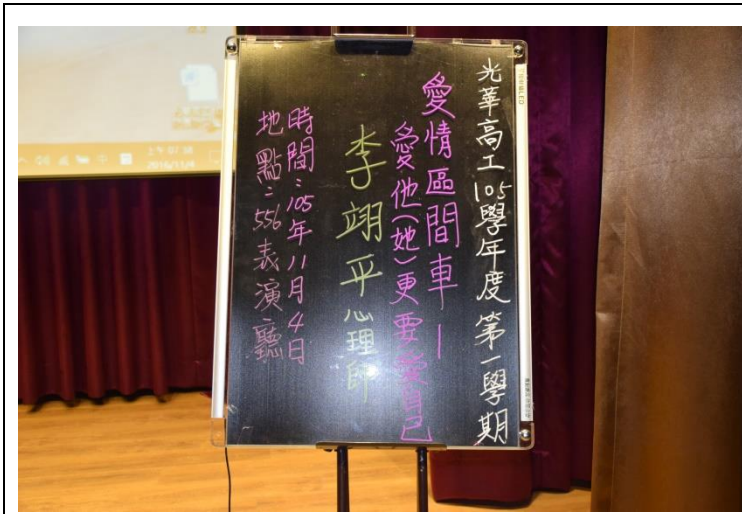 光華高工105學年度第一學期
愛情區間車－
愛他(她)更要愛自己
李翊平心理師
時間:105年11月4日
地點:556表演廳